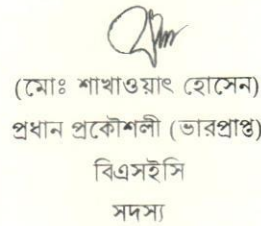 (মোঃ শাখাওয়াৎ হোসেন)
প্রধান প্রকৌশলী (ভারপ্রাপ্ত)
বিএসইসি
সদস্য